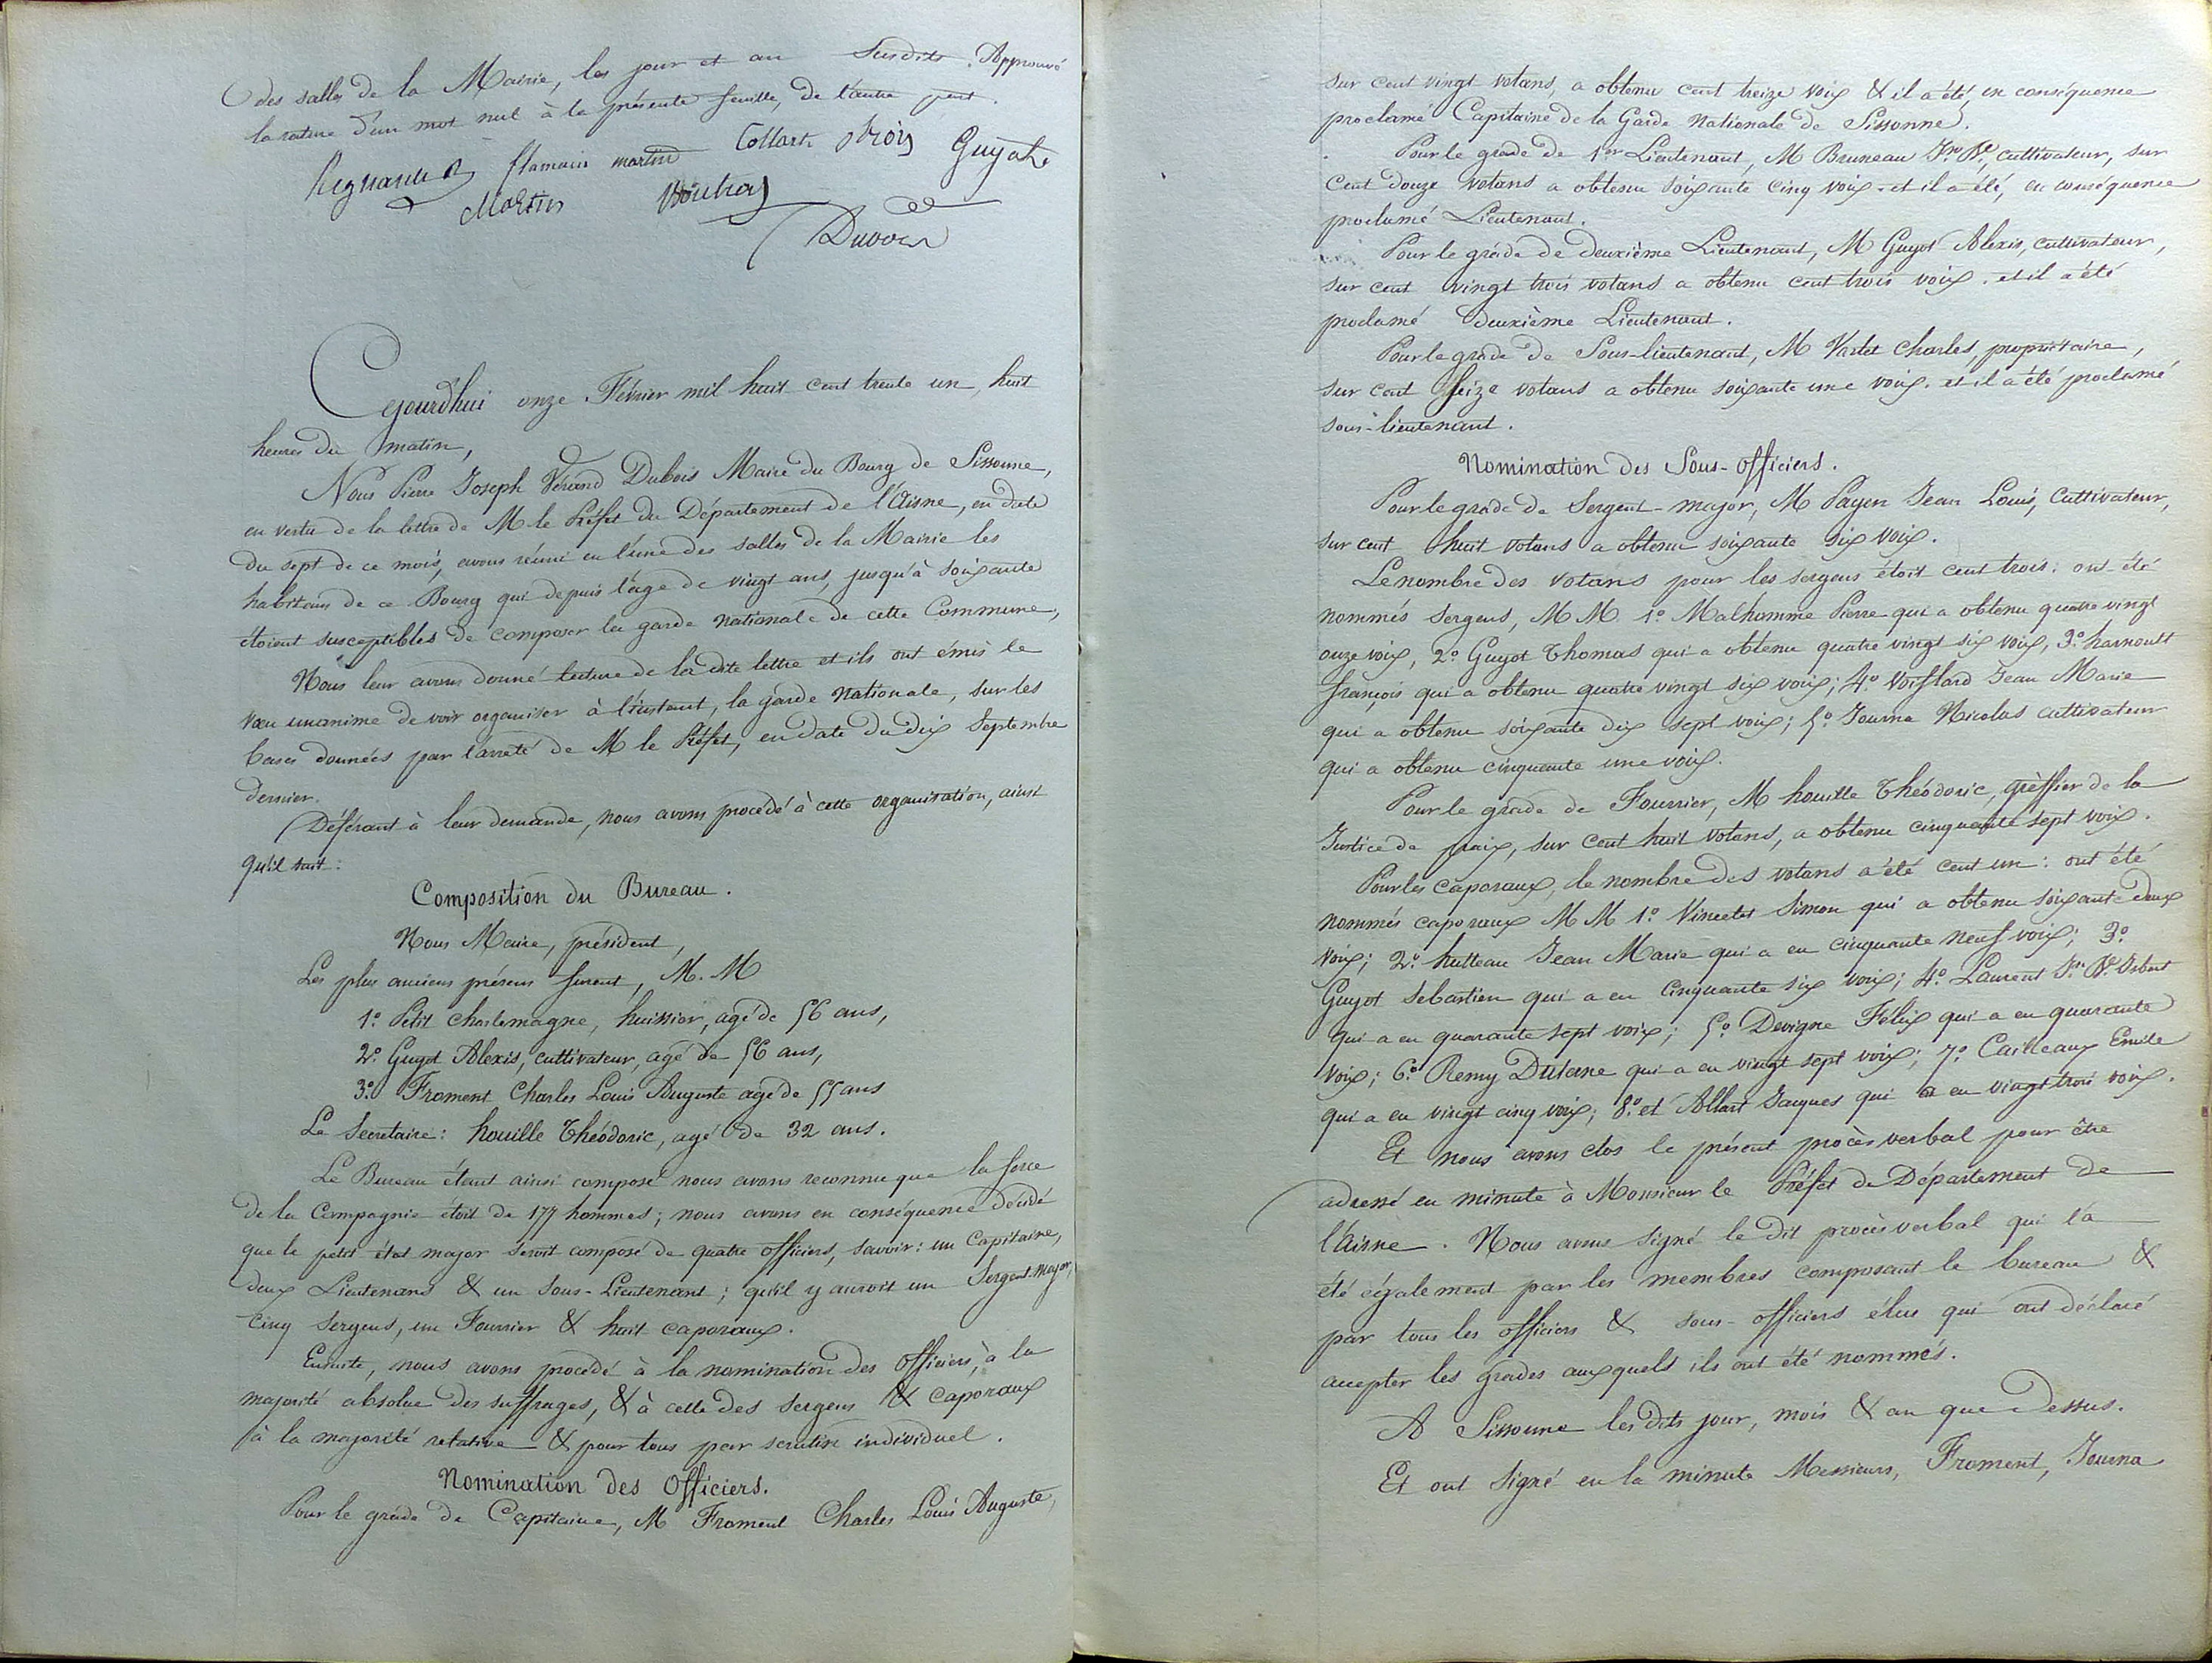 des salles de la Mairie, les jour et an susdits. Approuvé
la rature d'un mot nul à la présente feuille, de l'autre part.
flamain martin Collart Guyot
Martin
Cejourd'hui onze Février mil huit cent trente un, huit
heures du matin,
Nous Pierre Joseph Dubois Maire du Bourg de Sissonne,
en vertu de la lettre de M le Préfet du Département de l'Aisne, en date
du sept de ce mois, avons réuni en l'une des salles de la Mairie les
habitans de ce Bourg qui depuis l'âge de vingt ans, jusqu'à soixante
étoient susceptibles de composer la garde nationale de cette Commune,
Nous leur avons donné lecture de la dite lettre et ils ont émis le
vœu unanime de voir organiser à l'instant, la garde nationale, sur les
bases données par l'arreté de M le Préfet, en date du dix Septembre
dernier.
Déférant à leur demande, nous avons procédé à cette organisation, ainsi
qu'il suit :
Composition du Bureau.
Nous Maire, président,
Les plus anciens présens furent, M. M
1.º Petit Charlemagne, huissier, agé de 56 ans,
2.º Guyot Alexis, cultivateur, agé de 56 ans,
3.º Froment Charles Louis Auguste agé de 55 ans
Le Secretaire : houille Théodoric, agé de 32 ans.
Le Bureau étant ainsi composé nous avons reconnu que la force
de la Compagnie étoit de 177 hommes ; nous avons en conséquence décidé
que le petit état major seroit composé de quatre officiers, savoir : un Capitaine,
deux Lieutenans & un Sous-Lieutenant ; qu'il y auroit un Sergent-Major,
cinq Sergens, un Fourrier & huit caporaux.
Ensuite, nous avons procédé à la nomination des officiers, à la
majorité absolue des suffrages, & à celle des sergens & caporaux
à la majorité relative & pour tous par scrutin individuel.
Nomination des Officiers.
Pour le grade de Capitaine, M Froment Charles Louis Auguste,
sur cent vingt votans, a obtenu cent treize voix & il a été, en conséquence
proclamé Capitaine de la Garde Nationale de Sissonne.
Pour le grade de 1er Lieutenant, M Bruneau Jn Bte, cultivateur, sur
cent douze votans a obtenu soixante cinq voix. et il a été, en conséquence
proclamé Lieutenant.
Pour le grade de deuxième Lieutenant, M Guyot Alexis, cultivateur,
sur cent vingt trois votans a obtenu cent trois voix. et il a été
proclamé deuxième Lieutenant.
Pour le grade de Sous-lieutenant, M Varlet Charles, propriétaire,
sur cent seize votans a obtenu soixante une voix. et il a été proclamé
sous-lieutenant.
Nomination des Sous-Officiers.
Pour le grade de Sergent-major, M Payen Jean Louis, Cultivateur,
sur cent huit votans a obtenu soixante six voix.
Le nombre des votans pour les sergens étoit cent trois : ont été
nommés sergens, M M 1.º Malhomme Pierre qui a obtenu quatre vingt
onze voix, 2.º Guyot Thomas qui a obtenu quatre vingt six voix, 3.º harnoult
françois qui a obtenu quatre vingt six voix ; 4.º Jean Marie
qui a obtenu soixante dix sept voix ; 5.º Journa Nicolas cultivateur
qui a obtenu cinquante une voix.
Pour le grade de Fourrier, M houille Théodoric, greffier de la
Justice de paix, sur cent huit votans, a obtenu cinquante sept voix.
Pour les caporaux, le nombre des votans a été cent un : ont été
nommés caporaux M M 1.º Simon qui a obtenu soixante deux
voix ; 2.º hutteau Jean Marie qui a eu cinquante neuf voix ; 3.º
Guyot Sebastien qui a eu cinquante six voix ; 4.º Laurent Jn Bte
qui a eu quarante sept voix ; 5.º Devigne Felix qui a eu quarante
voix ; 6.º Remy qui a eu vingt sept voix ; 7.º Cailleaux Emile
qui a eu vingt cinq voix ; 8.º et Allart Jacques qui a eu vingt trois voix.
Et nous avons clos le présent procès verbal pour être
adressé en minute à Monsieur le Préfet du Département de
l'Aisne. Nous avons signé le dit procès verbal qui l'a
été également par les membres composant le bureau &
par tous les officiers & sous-officiers élus qui ont déclaré
accepter les grades auxquels ils ont été nommés.
A Sissonne les dits jour, mois & an que dessus.
Et ont signé en la minute Messieurs, Froment, Journa